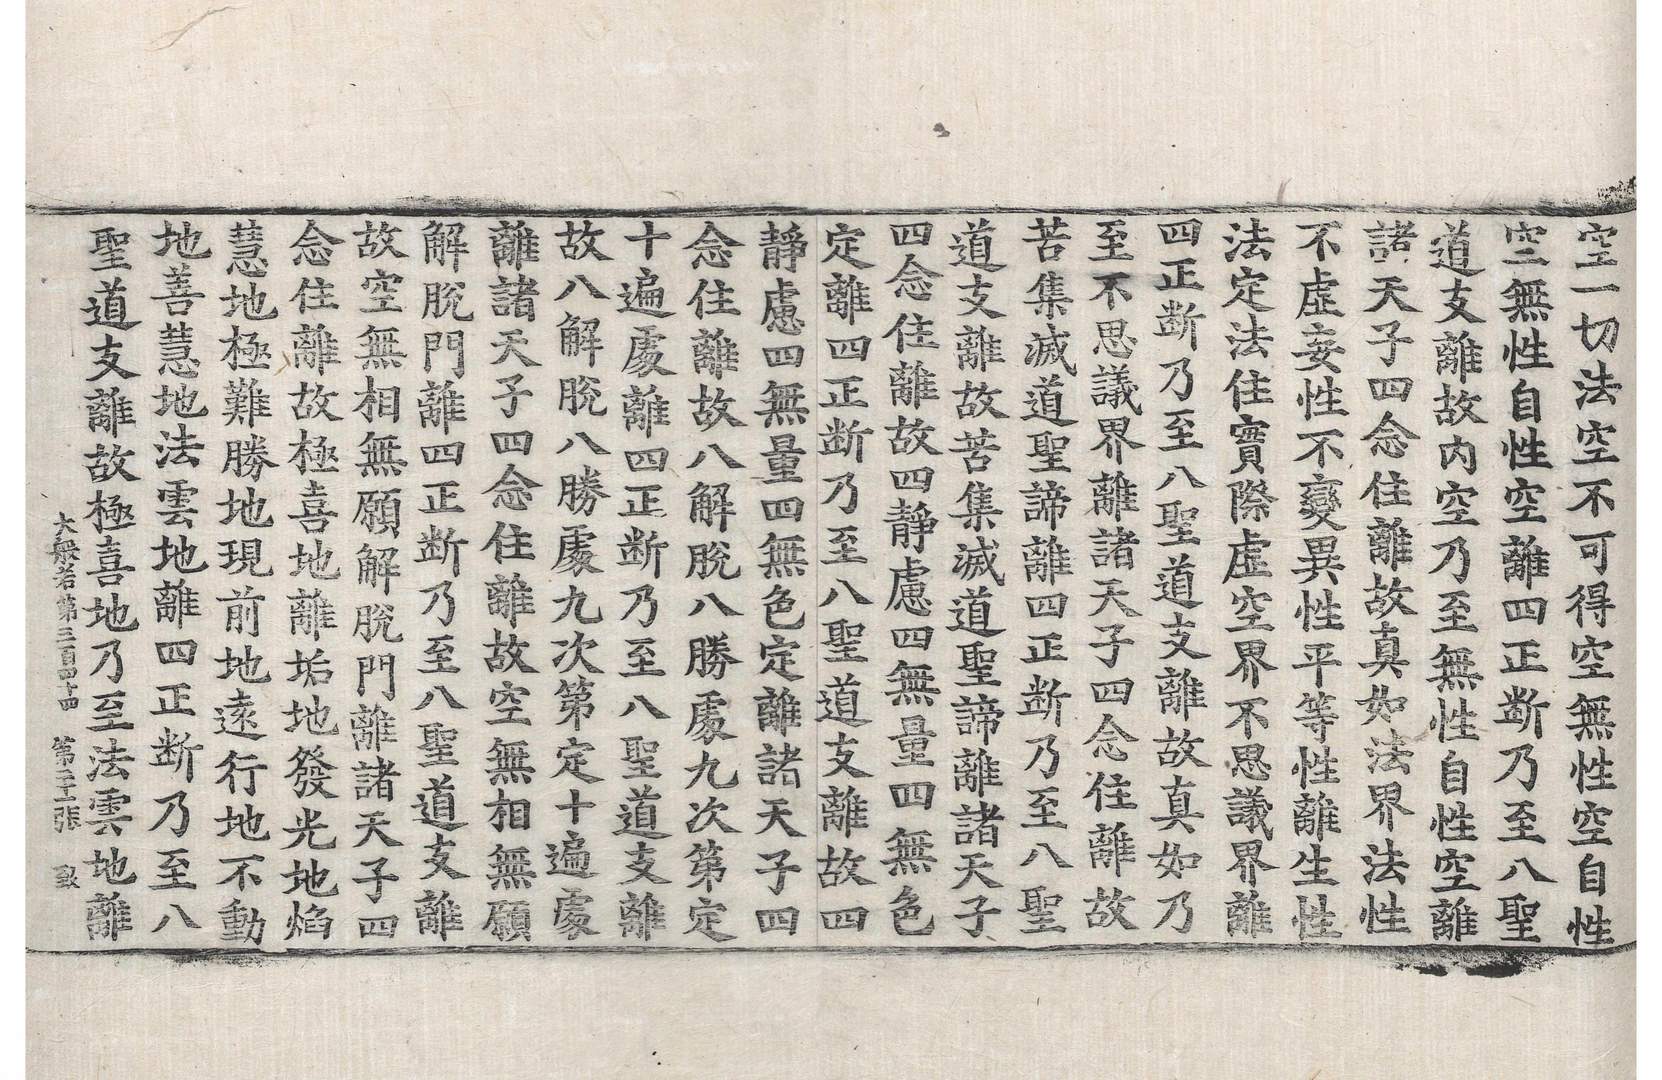 空一切法空不可得空無性空自性
空無性自性空離四正断乃至八聖
道支離故内空乃至無性自性空離
諸天子四念住離故真如法界法性
不虛妄性不變異性平等性離生性
法定法住實際虛空界不思議界離
四正断乃至八聖道支離故真如乃
至不思議界離諸天子四念住離故
苦集滅道聖諦離四正断乃至八聖
道支離故苦集滅道聖諦離諸天子
四念住離故四靜慮四無量四無色
定離四正断乃至八聖道支離故四
靜慮四無量四無色定離諸天子四
念住離故八解脫八勝處九次第定
十遍處離四正断乃至八聖道支離
故八解脫八勝處九次第定十遍處
離諸天子四念住離故空無相無願
解脫門離四正断乃至八聖道支離
故空無相無願解脫門離諸天子四
念住離故極喜地離垢地發光地焰
慧地極難勝地現前地遠行地不動
地善慧地法雲地離四正断乃至八
聖道支離故極喜地乃至法雲地離
大般若第三百四十四 第二十一張 致